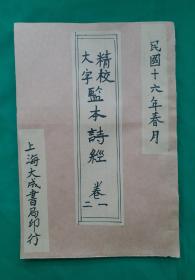 民國十六年春月
精校
大字
監本詩經
卷一
二
上海大成書局印行